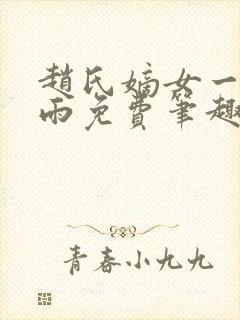 趙氏嫡女一
雨免費筆趣
青春小九九